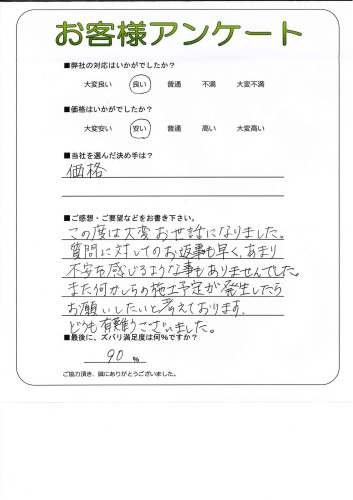 お客様アンケート
■弊社の対応はいかがでしたか？
大変良い 良い 普通 不満 大変不満
■価格はいかがでしたか？
大変安い 安い 普通 高い 大変高い
■当社を選んだ決め手は？
価格
■ご感想・ご要望などをお書き下さい。
この度は大変お世話になりました。
質問に対してのお返事も早く、あまり
不安を感じるような事もありませんでした。
また何かしらの施工予定が発生したら
お願いしたいと考えております。
どうも有難うございました。
■最後に、ズバリ満足度は何％ですか？
90 %
ご協力頂き、誠にありがとうございました。